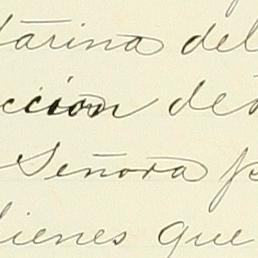 tarina del
ccion de
Señora
bienes que